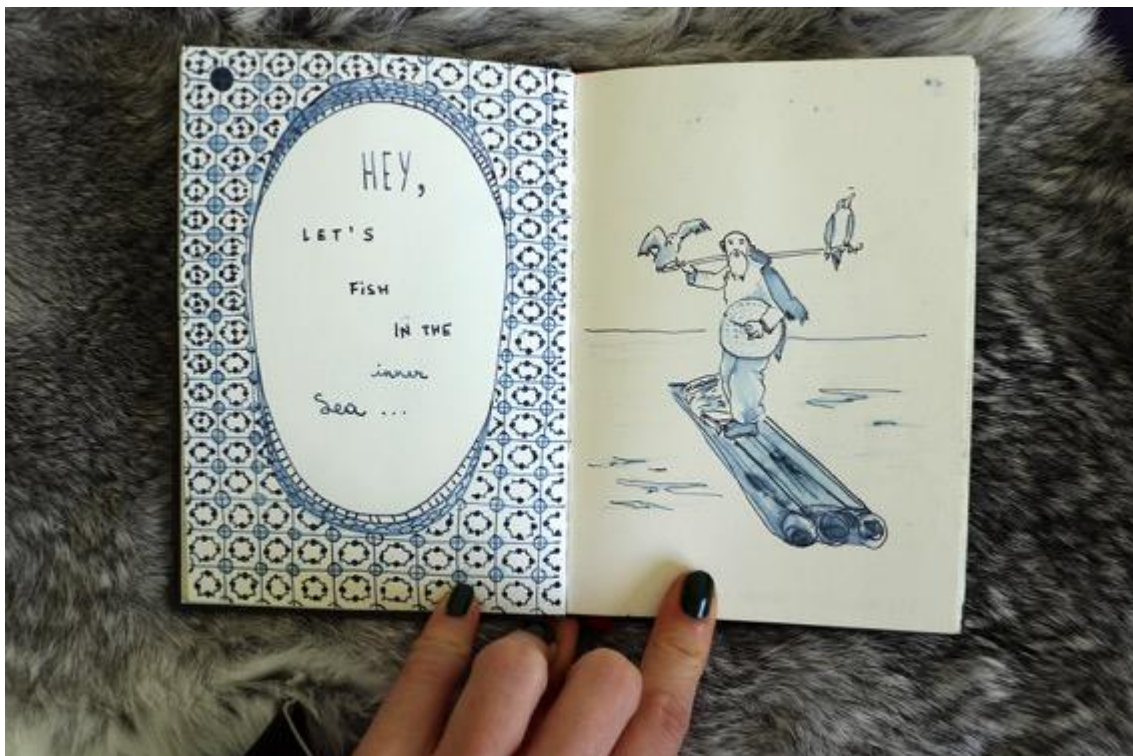 HEY,
LET'S
FISH
IN THE
inner
Sea ...